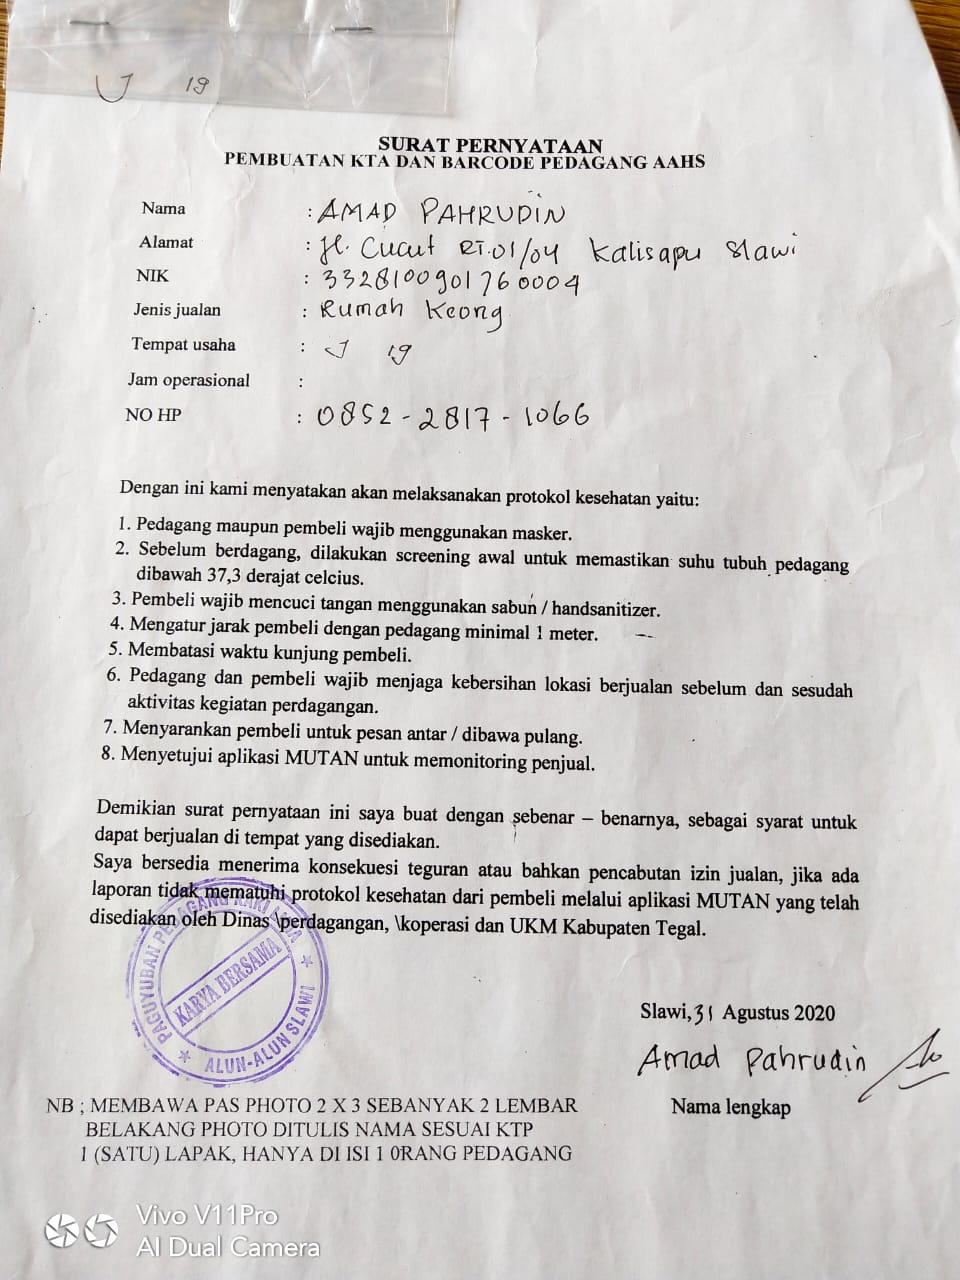 U 19
SURAT PERNYATAAN
PEMBUATAN KTA DAN BARCODE PEDAGANG AAHS
Nama : AMAD PAHRUDIN
Alamat : Jl. Cucut RT.01/04 Kalisapu Slawi
NIK : 3328100901760004
Jenis jualan : Rumah Keong
Tempat usaha : 19
Jam operasional :
NO HP : 0852-2817-1066
Dengan ini kami menyatakan akan melaksanakan protokol kesehatan yaitu:
1. Pedagang maupun pembeli wajib menggunakan masker.
2. Sebelum berdagang, dilakukan screening awal untuk memastikan suhu tubuh pedagang
dibawah 37,3 derajat celcius.
3. Pembeli wajib mencuci tangan menggunakan sabun / handsanitizer.
4. Mengatur jarak pembeli dengan pedagang minimal 1 meter.
5. Membatasi waktu kunjung pembeli.
6. Pedagang dan pembeli wajib menjaga kebersihan lokasi berjualan sebelum dan sesudah
aktivitas kegiatan perdagangan.
7. Menyarankan pembeli untuk pesan antar / dibawa pulang.
8. Menyetujui aplikasi MUTAN untuk memonitoring penjual.
Demikian surat pernyataan ini saya buat dengan sebenar – benarnya, sebagai syarat untuk
dapat berjualan di tempat yang disediakan.
Saya bersedia menerima konsekuesi teguran atau bahkan pencabutan izin jualan, jika ada
laporan tidak mematuhi protokol kesehatan dari pembeli melalui aplikasi MUTAN yang telah
disediakan oleh Dinas \perdagangan, \koperasi dan UKM Kabupaten Tegal.
PAGUYUBAN PEDAGANG KAKI LIMA
KARYA BERSAMA
ALUN-ALUN SLAWI
Slawi, 31 Agustus 2020
Amad Pahrudin
Nama lengkap
NB ; MEMBAWA PAS PHOTO 2 X 3 SEBANYAK 2 LEMBAR
BELAKANG PHOTO DITULIS NAMA SESUAI KTP
1 (SATU) LAPAK, HANYA DI ISI 1 0RANG PEDAGANG
Vivo V11Pro
AI Dual Camera